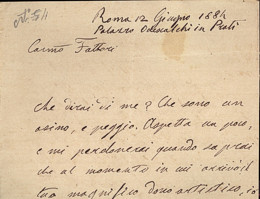 Roma 12 Giugno 1884
Palazzo Odescalchi in Prati
Carmo Fattori
che dirai di me? Che sono un
asino, e peggio. Aspetta un poco,
e mi perdonerai quando saprai
che al momento in cui arrivò il
tuo magnifico dono artistico, io